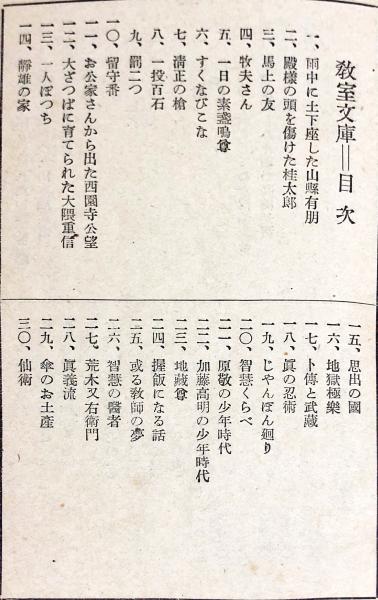 教室文庫＝目次
一、雨中に土下座した山縣有朋
二、殿様の頭を傷けた桂太郎
三、馬上の友
四、牧夫さん
五、一日の素盞鳴尊
六、すくなびこな
七、清正の槍
八、一投百石
九、罰二つ
一〇、留守番
一一、お公家さんから出た西園寺公望
一二、大ざつぱに育てられた大隈重信
一三、一人ぽつち
一四、靜雄の家
一五、思出の國
一六、地獄極樂
一七、卜傳と武藏
一八、眞の忍術
一九、じやんぽん廻り
二〇、智慧くらべ
二一、原敬の少年時代
二二、加藤高明の少年時代
二三、地藏尊
二四、握飯になる話
二五、或る敎師の夢
二六、智慧の醫者
二七、荒木又右衛門
二八、眞義流
二九、傘のお土產
三〇、仙術